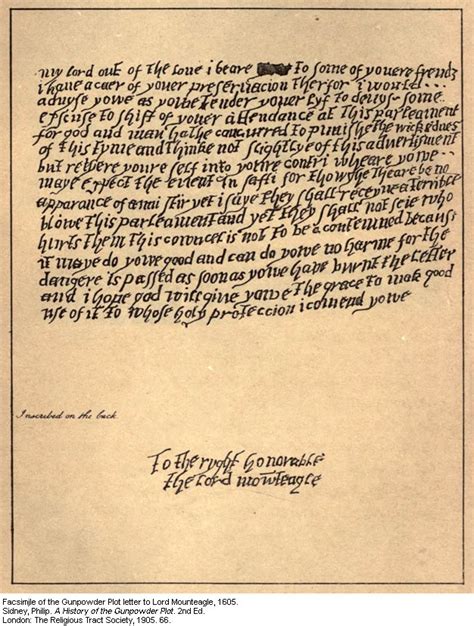 my lord out of the love i beare to some of youere frends
i have a caer of youer preseruacion therfor i would
advyse yowe as yowe tender youer lyf to devys some
excuse to shift of youer attendance at this parleament
for god and man hathe concurred to punishe the wickednes
of this tyme and thinke not slightlye of this advertisment
but retyere youre self into youre contri wheare yowe
maye expect the event in safti for thowghe theare be no
apparance of anni stir yet i saye they shall receyve a terrible
blowe this parleament and yet they shall not seie who
hurts them this cowncel is not to be acontemned becaus
it maye do yowe good and can do yowe no harme for the
dangere is passed as soon as yowe have burnt the letter
and i hope god will give yowe the grace to mak good
use of it to whose holy proteccion i comend yowe
Inscribed on the back.
To the ryght honorable
the lord mowteagle
Facsimile of the Gunpowder Plot letter to Lord Mounteagle, 1605.
Sidney, Philip. A History of the Gunpowder Plot. 2nd Ed.
London: The Religious Tract Society, 1905. 66.